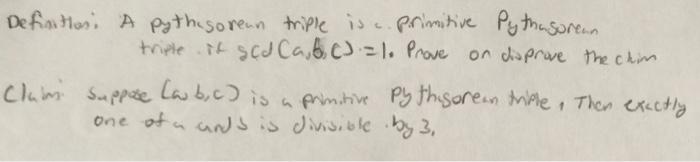 Definition: A Pythagorean triple is a primitive Pythagorean
triple if gcd(a,b,c) = 1. Prove or disprove the claim
Claim: Suppose (a,b,c) is a primitive Pythagorean triple, Then exactly
one of a and b is divisible by 3.